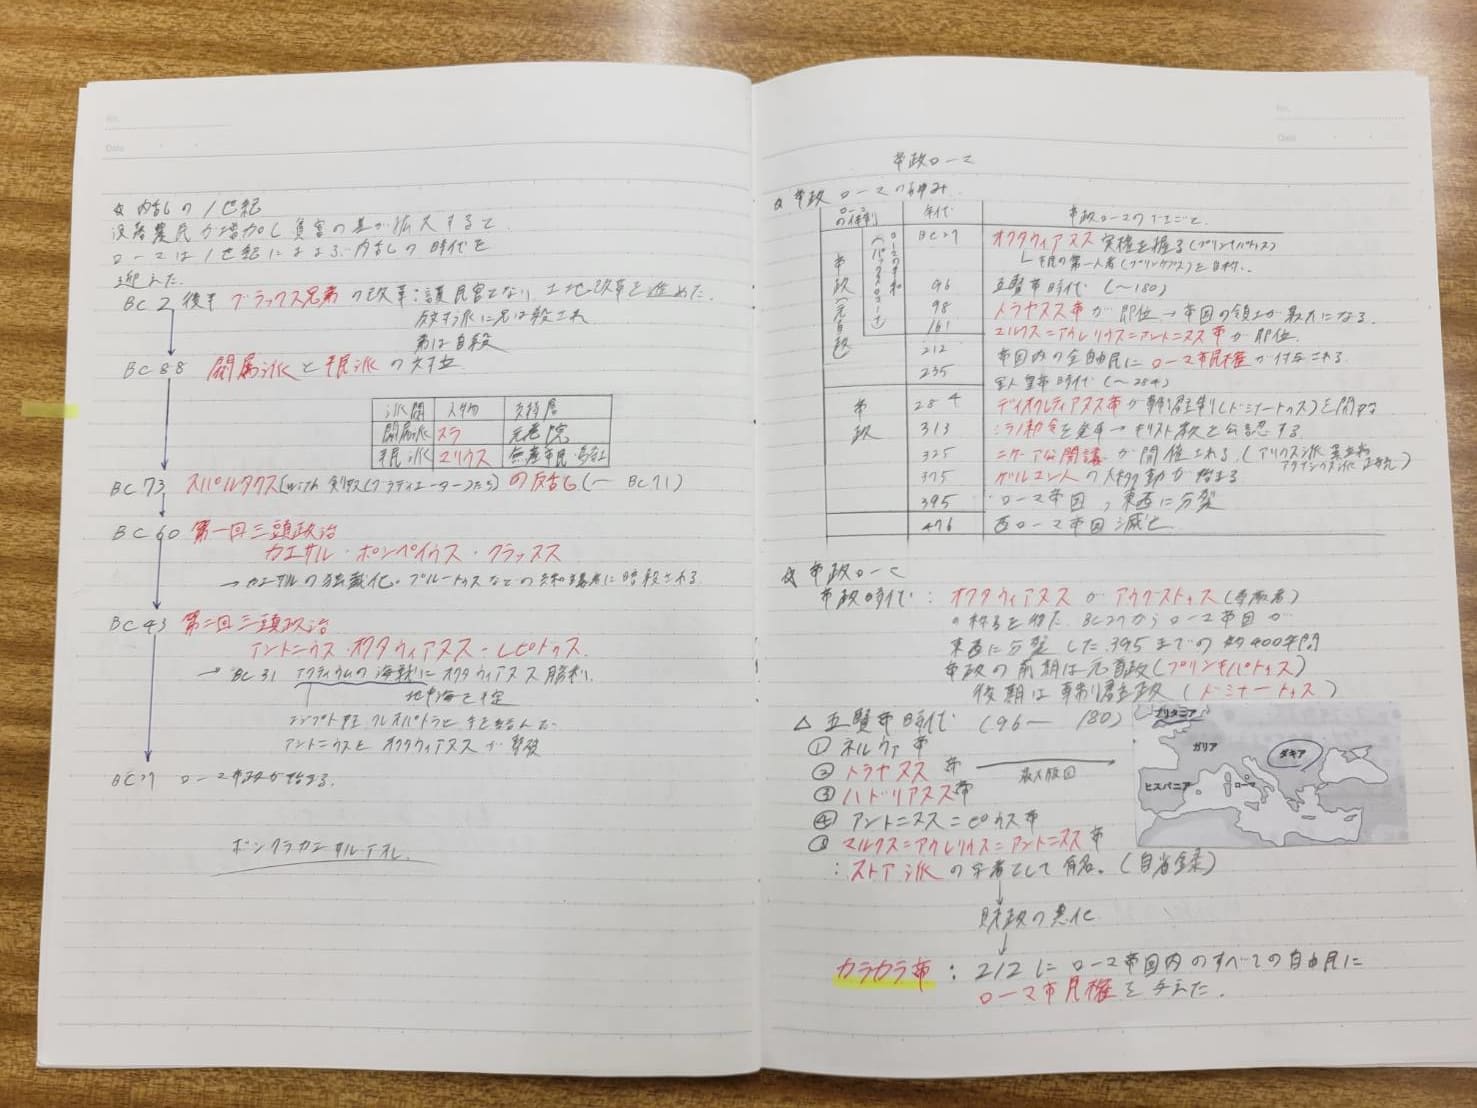 No.
Date
☆ 内乱の1世紀
没落農民が増加し貧富の差が拡大すると
ローマは1世紀におよぶ内乱の時代を
迎えた.
BC 2 後半 グラックス兄弟の改革:護民官となり、土地改革を進めた.
反対派に兄は殺され
弟は自殺
BC 88 閥属派と平民派の対立
派閥 人物 支持層
閥属派 スラ 元老院
平民派 マリウス 無産市民・
BC 73 スパルタクス(with 剣奴(グラディエーターつれ)の反乱(ー BC71)
BC 60 第一回三頭政治
カエサル・ポンペイウス・クラッスス
→カエサルの独裁化。ブルートゥスなどの共和主義者に暗殺される
BC 43 第二回三頭政治
アントニウス・オクタウィアヌス・レピドゥス.
→ BC 31 アクティウムの海戦にオクタウィアヌス勝利.
地中海を
エジプト クレオパトラと手を結んだ
アントニウスとオクタウィアヌスが
BC 27 ローマ帝政が始まる.
ボンクラカエサルデオレ.
No.
Date
帝政ローマ
☆ 帝政ローマの
ローマの体制 年代 帝政ローマのできごと
帝政(元首政)
ローマの平和(パックスロマーナ)
BC27 オクタウィアヌス 実権を握る(プリンキパトゥス)
└市民の第一人者(プリンケプス)と自称..
96 五賢帝時代(〜180)
98 トラヤヌス帝が即位→帝国の領土が最大になる.
161 マルクス=アウレリウス=アントニヌス帝が即位.
212 帝国内の全自由民にローマ市民権が付与される
235 軍人皇帝時代(〜284)
帝政
284 ディオクレティアヌス帝が専制君主制(ドミナートゥス)を開始
313 ミラノ勅令を発布→キリスト教を公認する.
325 ニケーア公開議が開催される(アリウス派 異端 アタナシウス派 正統)
375 ゲルマン人の大移動が始まる
395 ローマ帝国,東西に分裂
476 西ローマ帝国滅亡
☆ 帝政ローマ
帝政時代:オクタウィアヌスがアウグストゥス(尊厳者)
の称号を得た BC27からローマ帝国が
東西に分裂した395までの約400年間
帝政の前期は元首政(プリンキパトゥス)
後期は専制君主政(ドミナートゥス)
△ 五賢帝時代(96ー 180)
① ネルウァ帝
② トラヤヌス帝 最大版図
③ ハドリアヌス帝
④ アントニヌス=ピウス帝
⑤ マルクス=アウレリウス=アントニヌス帝
:ストア派の学者として有名.(自省録)
ブリタニア
ガリア
ダキア
ヒスパニア
ローマ
↓
財政の悪化
↓
カラカラ帝:212にローマ帝国内のすべての自由民に
ローマ市民権を与えた.